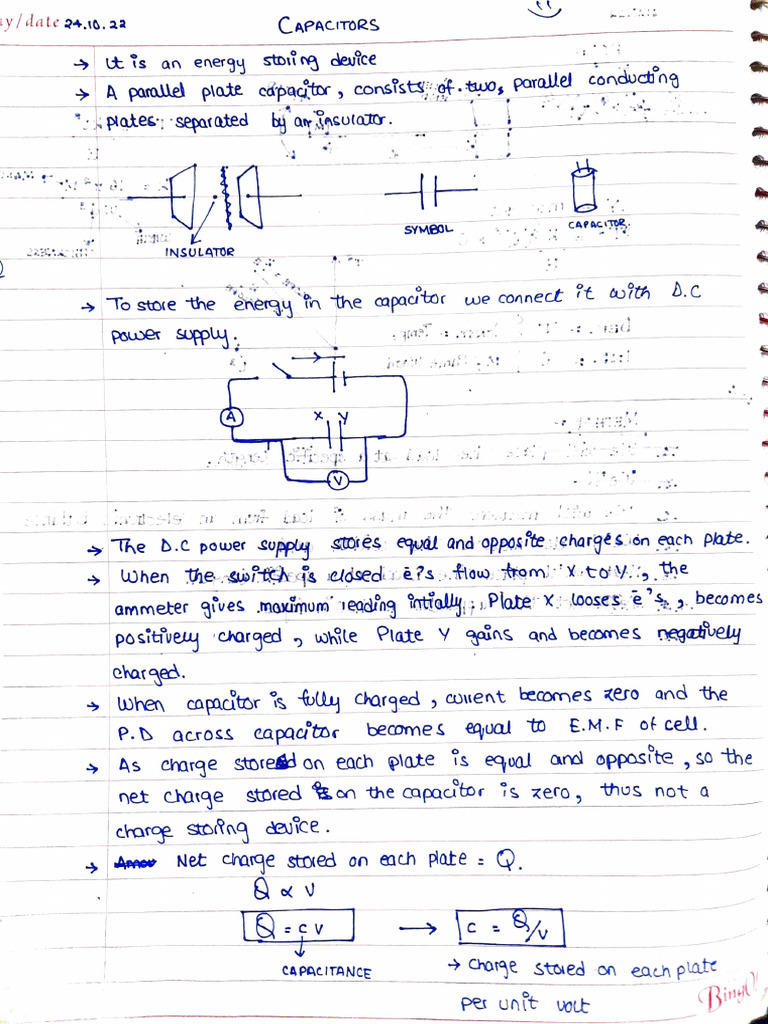 ay/date 24.10.22
CAPACITORS
→ It is an energy storing device
→ A parallel plate capacitor, consists of two, parallel conducting
plates separated by an insulator.
INSULATOR
SYMBOL
CAPACITOR.
→ To store the energy in the capacitor we connect it with D.C
power supply.
A
X Y
V
→ The D.C power supply stores equal and opposite charges on each plate.
→ When the switch is closed e's flow from X to Y, the
ammeter gives maximum reading intially. Plate X looses e's, becomes
positively charged, while Plate Y gains and becomes negatively
charged.
→ When capacitor is fully charged, current becomes zero and the
P.D across capacitor becomes equal to E.M.F of cell.
→ As charge stored on each plate is equal and opposite, so the
net charge stored on the capacitor is zero, thus not a
charge storing device.
→ Net charge stored on each plate = Q.
Q ∝ V
Q = CV → C = Q/V
CAPACITANCE
→ Charge stored on each plate
per unit volt